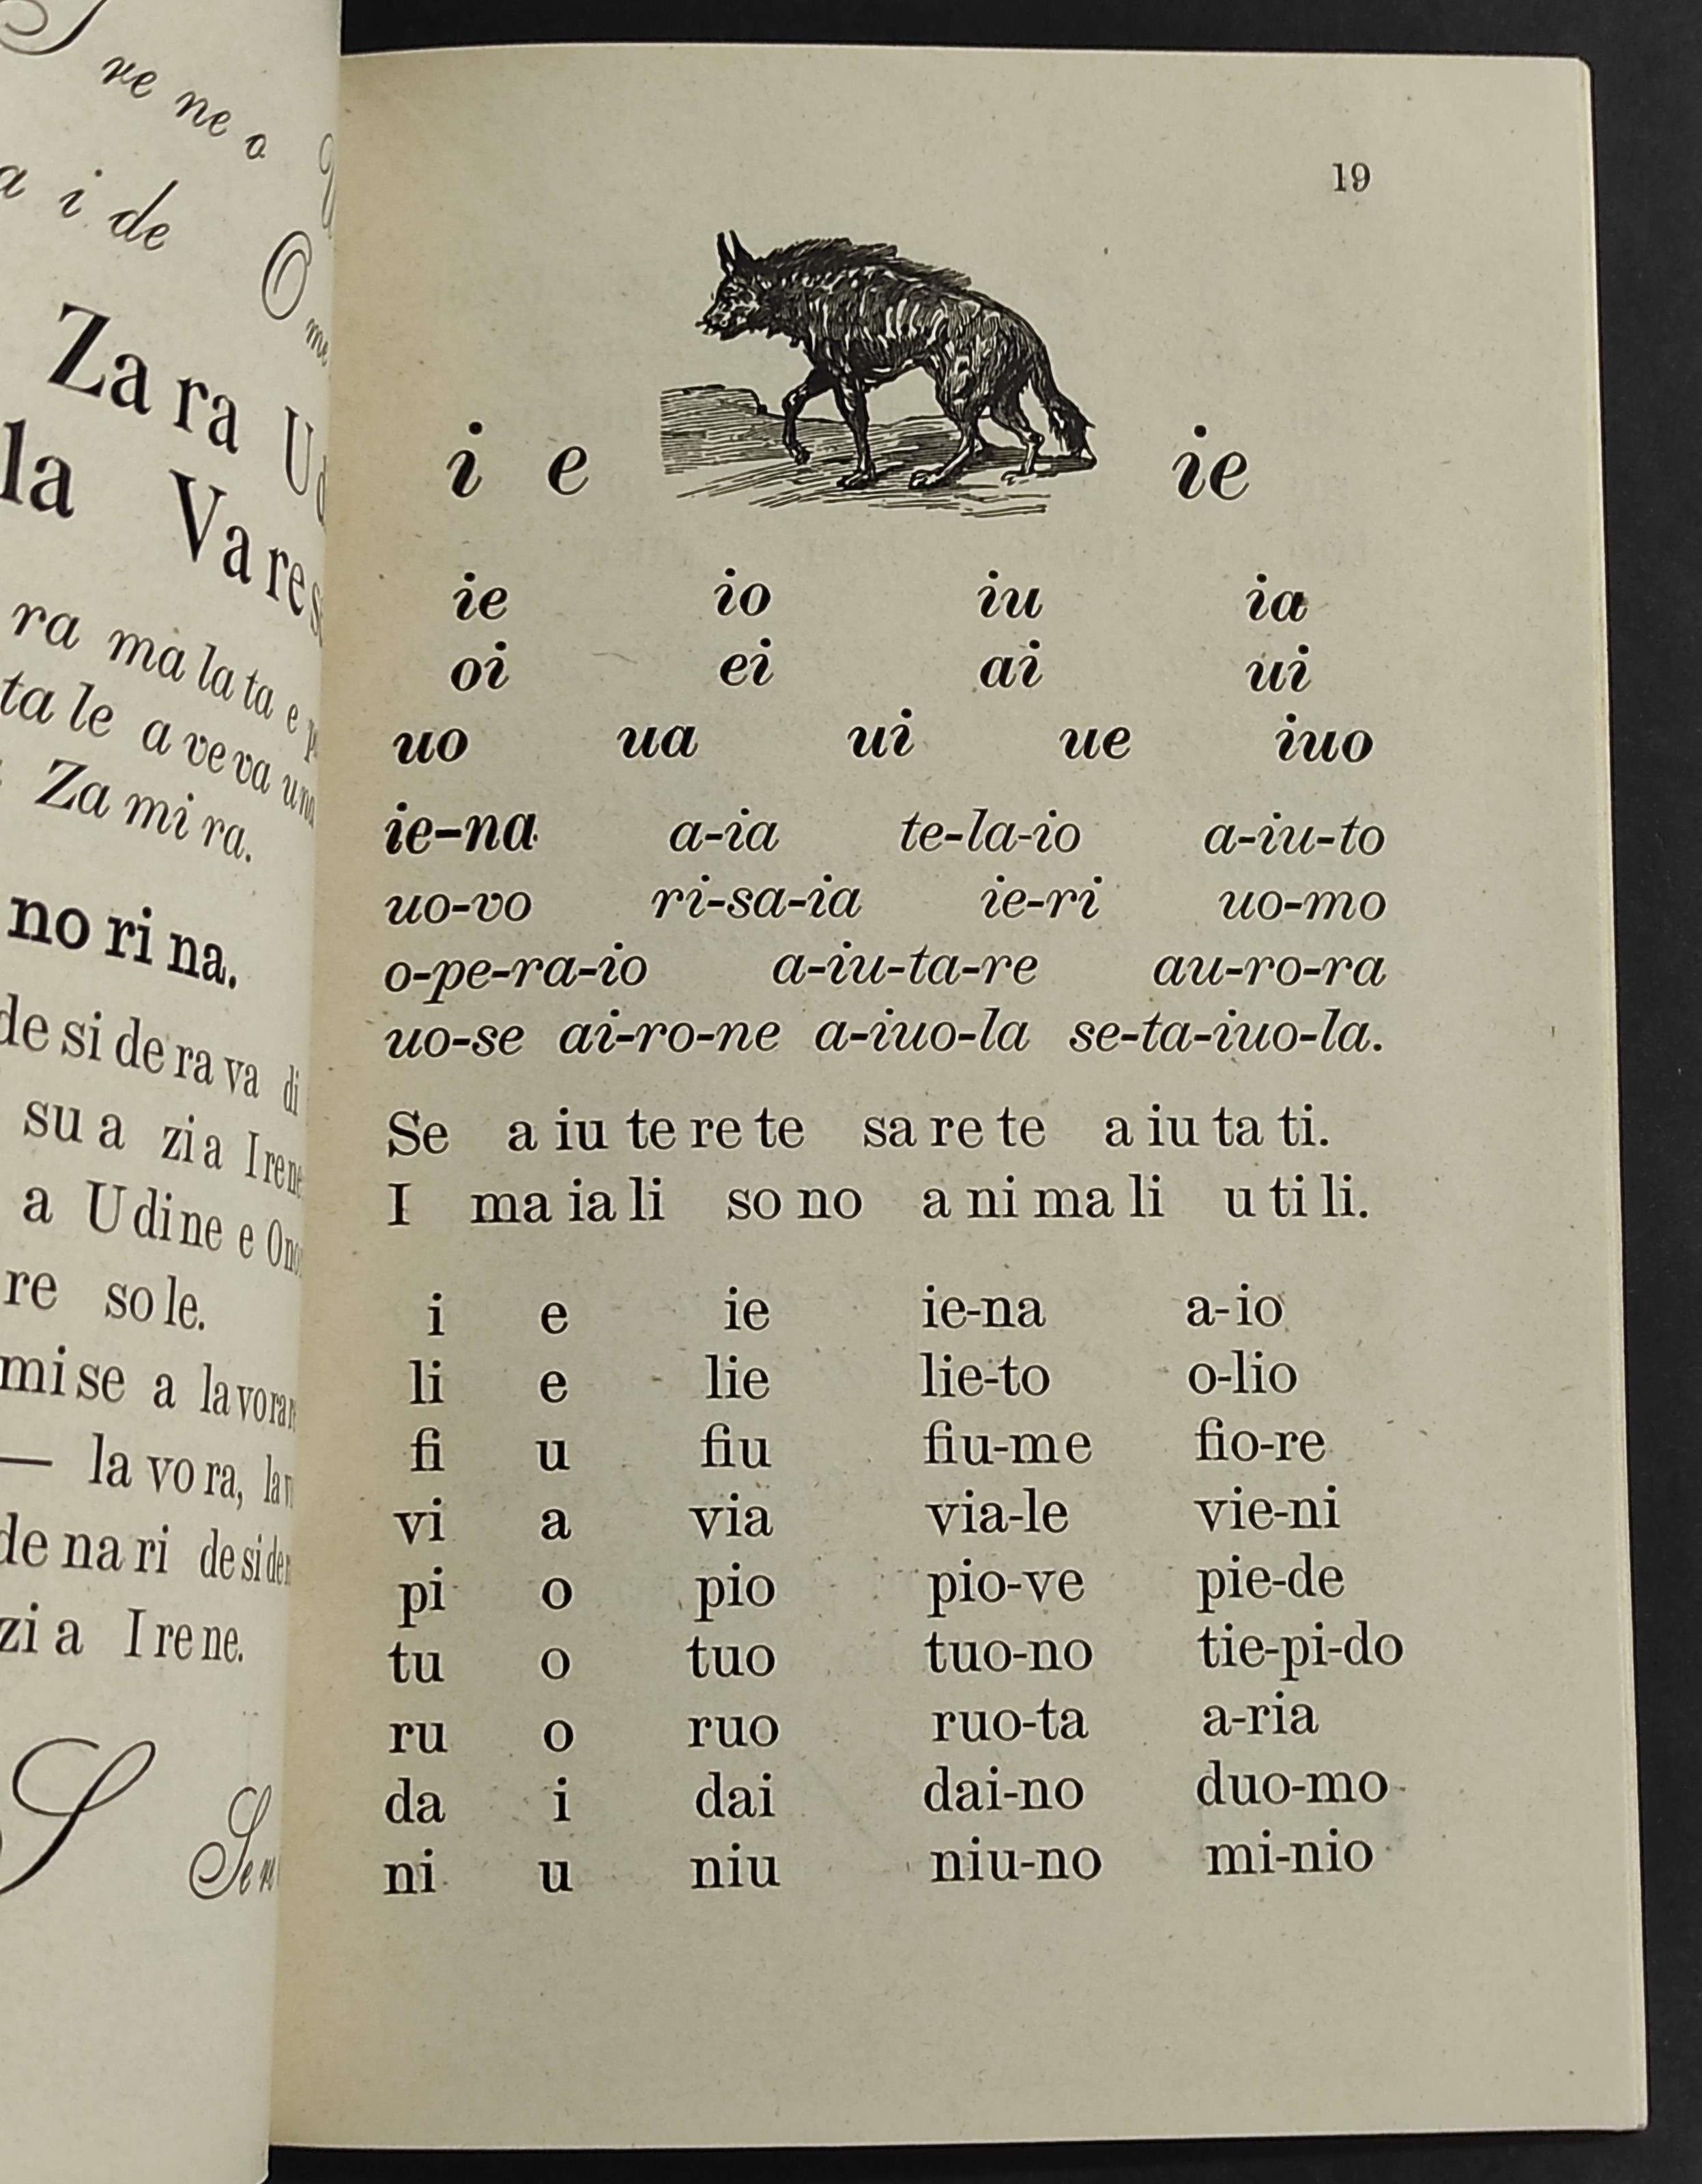 re ne o
a i de O
Za ra
la Va res
ra ma la ta e
ta le a ve va
Za mi ra.
no ri na.
de si de ra va di
su a zi a I rene
a U di ne e
re so le.
mi se a la vo
— la vo ra,
de na ri de si
zi a I re ne.
S Se
19
i e ie
ie io iu ia
oi ei ai ui
uo ua ui ue iuo
ie-na a-ia te-la-io a-iu-to
uo-vo ri-sa-ia ie-ri uo-mo
o-pe-ra-io a-iu-ta-re au-ro-ra
uo-se ai-ro-ne a-iuo-la se-ta-iuo-la.
Se a iu te re te sa re te a iu ta ti.
I ma ia li so no a ni ma li u ti li.
i e ie ie-na a-io
li e lie lie-to o-lio
fi u fiu fiu-me fio-re
vi a via via-le vie-ni
pi o pio pio-ve pie-de
tu o tuo tuo-no tie-pi-do
ru o ruo ruo-ta a-ria
da i dai dai-no duo-mo
ni u niu niu-no mi-nio